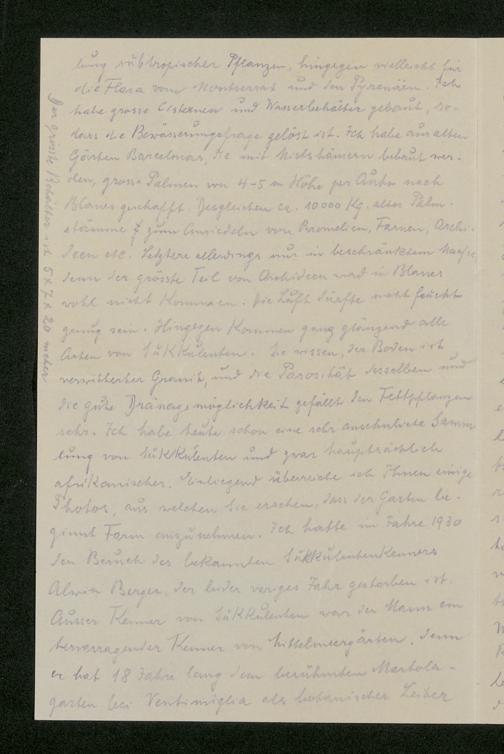 lung subtropischer Pflanzen, hingegen vielleicht für
die Flora vom Montserrat und den Pyrenäen. Ich
habe grosse Cisternen und Wasserbehälter gebaut, so-
dass die Bewässerungsfrage gelöst ist. Ich habe aus alten
Gärten Barcelonas, die mit Miethäusern bebaut wer-
den, grosse Palmen von 4-5 m Höhe per Auto nach
Blanes geschafft. Desgleichen ca. 10000 Kg. altes Palm-
stämme zum Ansiedeln von Bromelien, Farnen, Orchi-
deen etc. Letztere allerdings nur in beschränktem Masse,
denn der grösste Teil von Orchideen wird in Blanes
wohl nicht kommen. Die Luft dürfte nicht feucht
genug sein. Hingegen kommen ganz glänzend alle
Arten von Sukkulenten. Sie wissen, der Boden ist
verwitterter Granit, und die Porosität desselben und
die gute Drainagemöglichkeit gefällt den Fettpflanzen
sehr. Ich habe heute schon eine sehr ansehnliche Samm
lung von Sukkulenten und zwar hauptsächlich
afrikanischer. Einliegend überreiche ich Ihnen einige
Photos, aus welchen Sie ersehen, dass der Garten be-
ginnt Form anzunehmen. Ich hatte im Jahre 1930
den Besuch des bekannten Sukkulentenkenners
Alwin Berger, der leider voriges Jahr gestorben ist.
Ausser Kenner von Sukkulenten war der Mann ein
hervorragender Kenner von Mittelmeergärten, denn
er hat 18 Jahre lang dem berühmten Mortola-
garten bei Ventimiglia als botanischer Leiter
Der grösste Behälter ist 5 x 7 x 20 meter